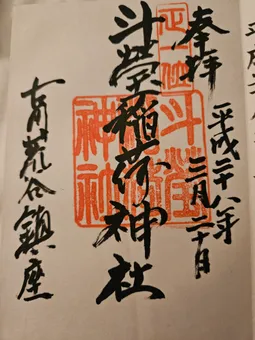 奉拝
平成二十八年
三月二十日
斗瑩稲荷神社
古川荒谷鎮座
正一位
斗瑩
稲荷
神社